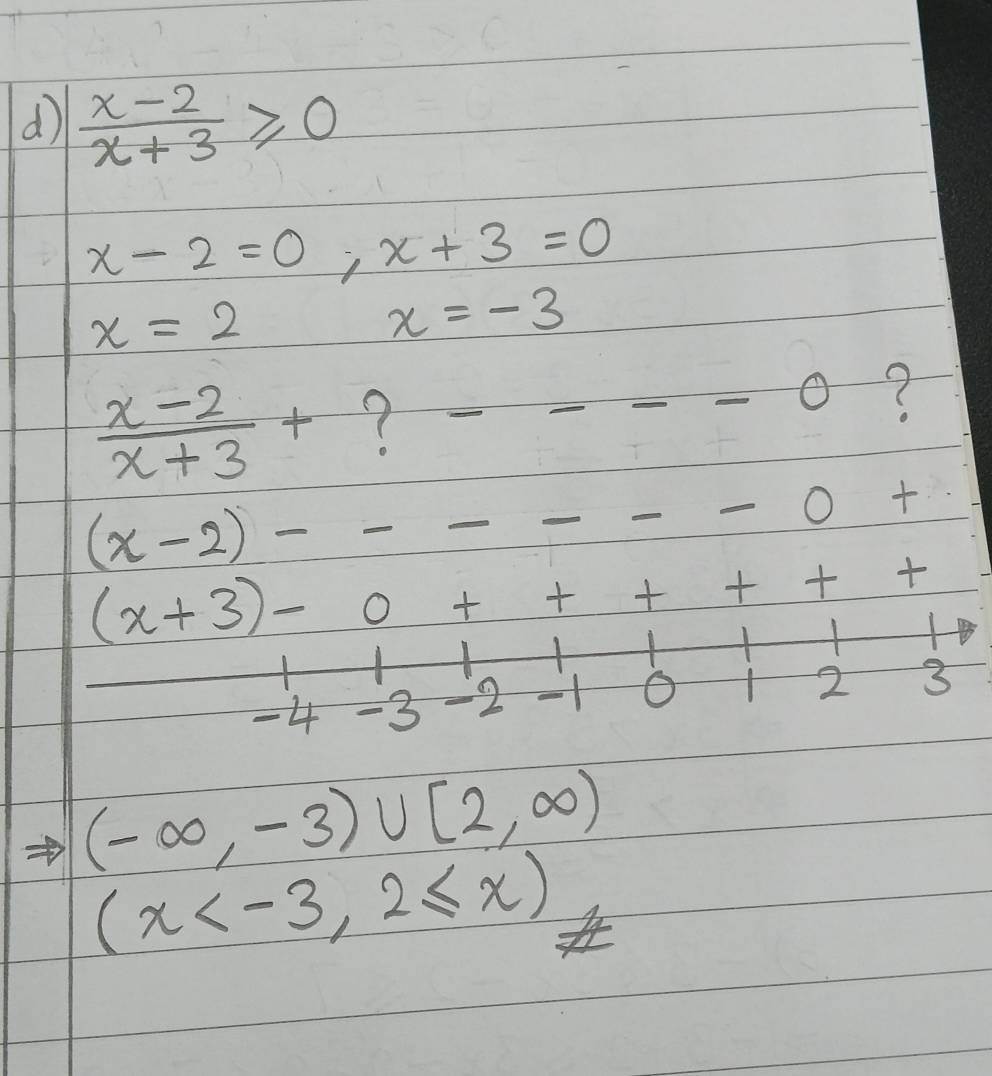 d) (x-2)/(x+3) ≥ 0
x - 2 = 0 , x + 3 = 0
x = 2 x = -3
(x-2)/(x+3) + ? - - - - 0 ?
(x-2) - - - - - - 0 +
(x+3) - 0 + + + + + +
-4 -3 -2 -1 0 1 2 3
⇒ (-∞, -3) ∪ [2, ∞)
(x < -3, 2 ≤ x) #